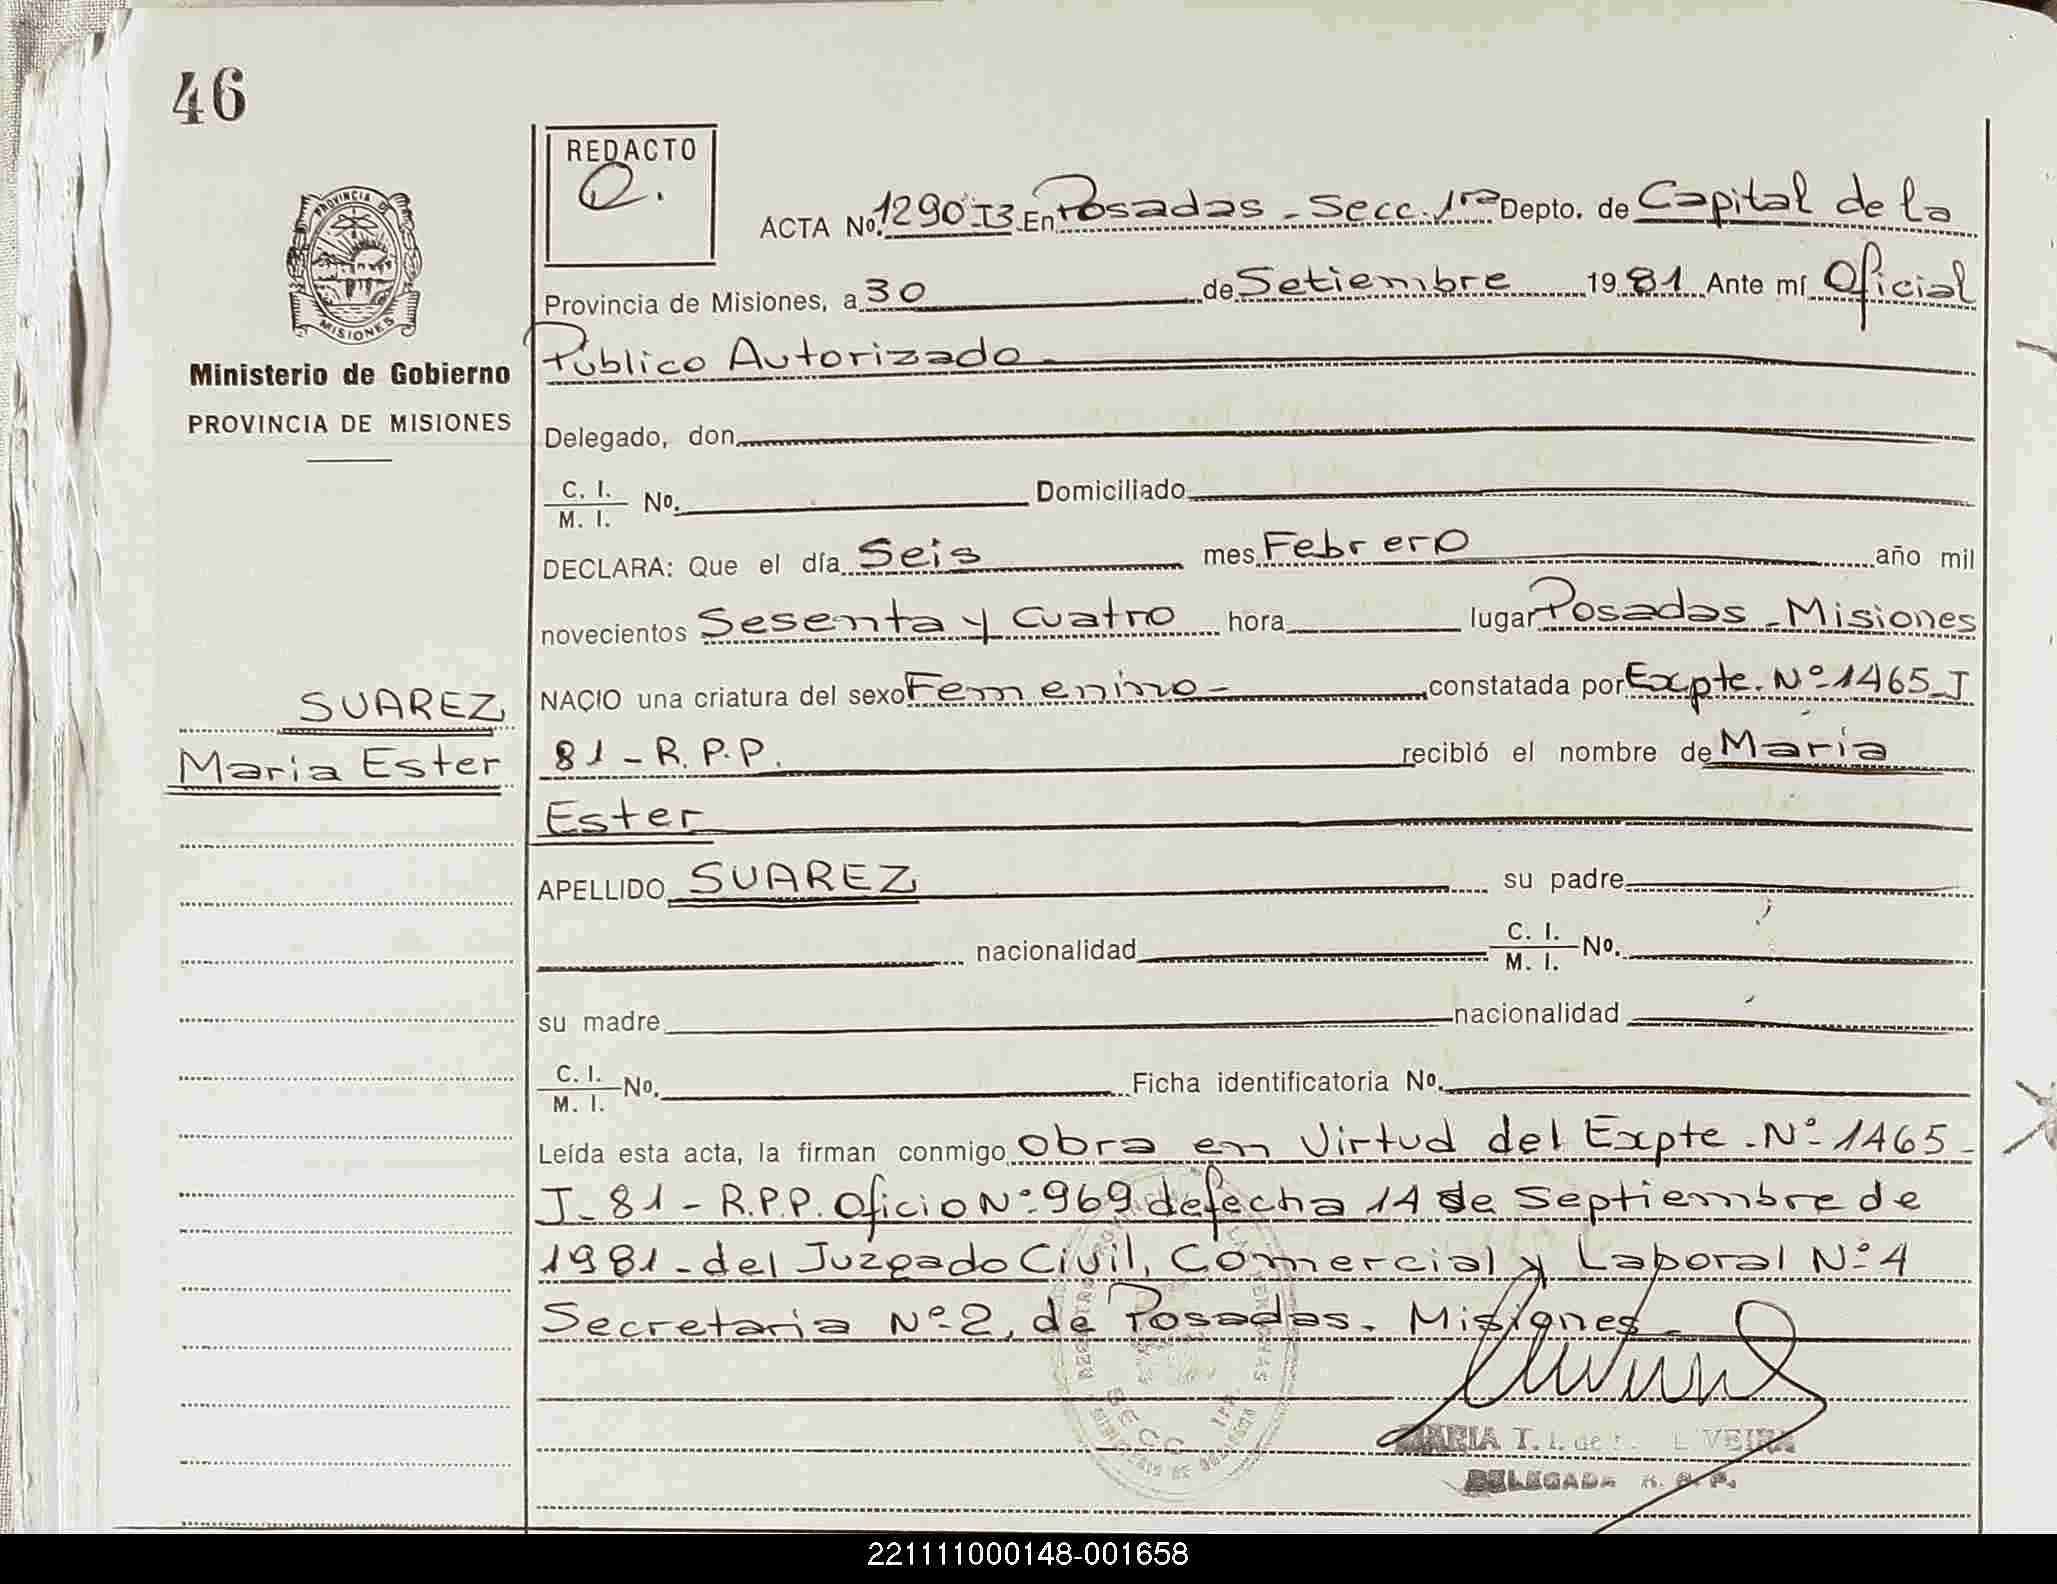 46
REDACTO
Q.
PROVINCIA DE
MISIONES
Ministerio de Gobierno
PROVINCIA DE MISIONES
SUAREZ
Maria Ester
ACTA No. 1290-T3 En Posadas - Secc. 1ra Depto. de Capital de la
Provincia de Misiones, a 30 de Setiembre 1981 Ante mí Oficial
Público Autorizado
Delegado, don
C. I.
M. I. No. Domiciliado
DECLARA: Que el día Seis mes Febrero año mil
novecientos Sesenta y Cuatro hora lugar Posadas - Misiones
NACIO una criatura del sexo Femenino - constatada por Expte. Nº 1465 J
81 - R.P.P. recibió el nombre de Maria
Ester
APELLIDO SUAREZ su padre
nacionalidad C. I.
M. I. No.
su madre nacionalidad
C. I.
M. I. No. Ficha identificatoria No.
Leída esta acta, la firman conmigo obra en Virtud del Expte. Nº 1465 -
J - 81 - R.P.P. Oficio Nº 969 de fecha 14 de Septiembre de
1981 - del Juzgado Civil, Comercial y Laboral Nº 4
Secretaria Nº 2, de Posadas. Misiones -
MARIA T. I. de
DELEGADA R. P.
221111000148-001658